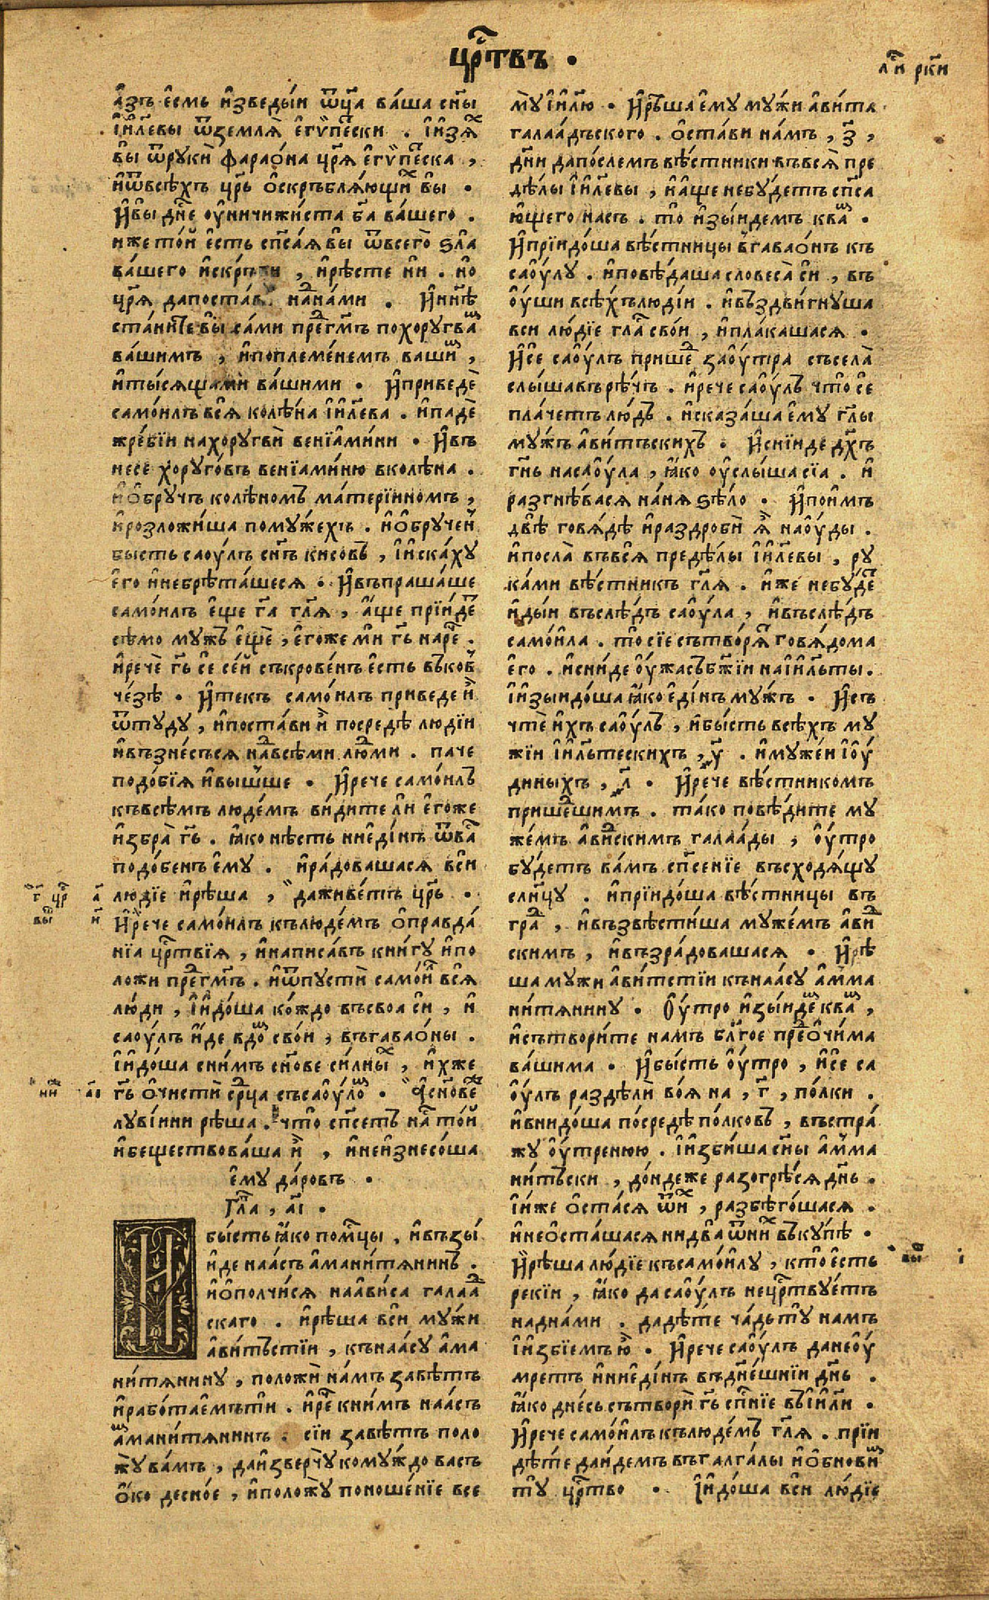 црⷭ҇твъ ·
л҃и рк҃и
а҆зъ є҆смь и҆зведыи ѿц҃а ва́ша сн҃ы
і҆и҃левы ѿземлѧ̀ є҆гѵ́петски . і҆изѧⷯ
вы ѿрꙋкѝ фарао́на цр҃ѧ є҆гѵ́петска ,
и҆ѿвсѣ́хъ цр҃ь ѡ҆скръблѧ́ющиⷯ вы ·
И҆вы дн҃е ᲂу҆ничижи́ста бг҃а ва́шего .
иже то́й є҆сть сп҃са́ѧ вы ѿвсегѡ̀ ѕла
ва́шего и҆ско́рби , и҆рѣ́сте нѝ . но
цр҃ѧ дапоста́виⷲ на́нами . И҆нн҃ѣ
ста́ните вы̀ са́ми преⷣгмⷭ҇ъ похорꙋгваⷨ
ва́шимъ , и҆поплеме́немъ ва́шиⷨ ,
и҆ты́сѧщами ва́шими · И҆приведѐ
само́илъ всѧ̀ колѣ́на і҆и҃лева . и҆падѐ
жре́бїи нахорꙋгвѝ венїами́ни · И҆въ
несѐ хорꙋго́въ венїами́ню вколѣ́на .
и҆ѡ҆брꙋчъ колѣ́номъ ма́терїинномъ ,
и҆розложи́ша помꙋ́жехъ . и҆ѡ҆брꙋче́й
бысть саоу́лъ сн҃ъ ки́совъ , і҆иска́хꙋ
є҆го̀ и҆небрѣ́ташесѧ · И҆въпраша́ше
само́илъ є҆ще гⷭ҇а гл҃ѧ , а҆́ще прїи́деⷮ
сѣ́мо мꙋжъ є҆щѐ , є҆го́же мѝ гь҃ наре́ⷱ .
и҆речѐ гь҃ се се́й съкрове́нъ є҆́сть въковⷱ
че́зѣ · И҆те́къ само́илъ приведе и҆̀
ѿтꙋдꙋ , и҆поста́ви и҆̀ посредѣ̀ люді́и
и҆възне́съсѧ наⷣвсѣ́ми люⷣми . паче
подо́бїѧ и҆вы́шше · И҆рече само́илъ
къвсѣ́мъ людє́мъ ви́дите ли є҆го́же
и҆збра̀ гь҃ . ꙗ҆́ко нѣ́сть ниеди́нъ ѿваⷭ
подо́бенъ є҆мꙋ . и҆ра́довашасѧ всѝ
лю́дїе и҆рѣ́ша , даживе́тъ цр҃ь .
И҆рече само́илъ къ людє́мъ ѡ҆правда́
нїа црⷭ҇твїѧ , и҆написа́въ кни́гꙋ и҆по
ложи преⷣгмⷭ҇ъ . и҆ѿпꙋстѝ само́иⷧ всѧ̀
лю́ди , і҆и҆до́ша ко́ждо въсвоѧ сѝ , и҆
саоу́лъ и҆де вдоⷨ сво́й , въгавао́ны .
і҆и҆до́ша сни́мъ сн҃ове си́лныⷯ , и҆хже
гь҃ ѡ҆чистѝ срⷣца съсаоу́лоⷨ · Ѻ҆сн҃ове́ⷤ
лꙋві́ини рѣ́ша . что̀ сп҃сетъ на́ⷭ то́й
и҆беществова́ша и҆̀ , и҆неи҆знесо́ша
є҆мꙋ да́ровъ .
Гл҃а , а҃і .
И҆
бы́сть ꙗ҆́ко помцⷭ҇ы , и҆възы́
и҆де наа́съ а҆манитѧ́нинъ .
и҆ѡ҆полчи́сѧ наа҆ви́са галааⷣ
скаго . и҆рѣ́ша всѝ мꙋ́жи
а҆ви́тъстїи , къ наа́сꙋ а҆ма
нитѧ́нинꙋ , положѝ на́мъ завѣ́тъ
и҆рабо́таемъти . и҆ре́ⷱ кни́мъ наа́съ
а҆манитѧ́нинъ . сі́и завѣ́тъ поло
жꙋ̀ ва́мъ , даи҆зверчꙋ̀ комꙋ́ждо ва́съ
ѻ҆́ко десно́е , и҆положꙋ̀ поноше́нїе все
мꙋ̀ і҆и҃лю · И҆рѣ́ша є҆мꙋ мꙋ́жи а҆ви́та
галаа́дьского . ѡ҆ста́ви на́мъ , з҃ ,
дн҃и дапо́слемъ вѣ́стники въвсѧ̀ пре
дѣ́лы і҆и҃левы , и҆а҆́ще небꙋ́детъ сп҃са
ю́щего на́съ . то̀ и҆зы́идемъ кваⷨ ·
И҆прїидо́ша вѣ́стницы вгавао́нъ къ
саоу́лꙋ . и҆повѣ́даша словеса̀ сѝ , въ
ᲂу҆́ши всѣ́хъ люді́и . и҆въздви́гнꙋша
вси лю́дїе гла́ⷭ сво́и , и҆пла́кашасѧ .
И҆сѐ саоу́лъ прише́ⷣ заоу́тра съсела̀
слы́шавърѣ́чь . и҆рече саоу́лъ что̀ сѐ
пла́четъ лю́дъ . и҆сказа́ша є҆мꙋ гл҃ы
мꙋ́жъ а҆ви́тъскихъ · И҆сни́иде дх҃ъ
гн҃ь насаоу́ла , ꙗ҆́ко ᲂу҆слы́ша сїа . и҆
разгнѣ́васѧ на́нѧ ѕѣло · И҆пои́мъ
двѣ̀ говѧ́дѣ и҆раздробѝ ѧ҆̀ наоу́ды .
и҆посла̀ въвсѧ̀ предѣ́лы і҆и҃левы , рꙋ
ка́ми вѣ́стникъ гл҃ѧ . и҆́же небꙋ́деⷮ
и҆ды́и въслѣ́дъ саоу́ла , и҆въслѣ́дъ
само́ила . то̀ сїе сътворѧ́ⷮ говѧ́дома
є҆го . и҆сни́де ᲂу҆́жасъ бж҃їи наі҆и҃лѧты .
і҆изыидо́ша ꙗ҆́ко є҆ди́нъ мꙋ́жъ · И҆съ
чтѐ и҆́хъ саоу́лъ , и҆бы́сть всѣ́хъ мꙋ
жі́и і҆и҃льтескихъ , у҃ . и҆мꙋже́й і҆оу́
диныхъ , л҃ · И҆рече вѣ́стникомъ
прише́ⷣшимъ . та́ко повѣ́дите мꙋ
же́мъ а҆ви́тскимъ галаа́ды , ᲂу҆́тро
бꙋ́детъ ва́мъ сп҃се́нїе въсходѧ́щꙋ
сл҃нцꙋ . и҆прїидо́ша вѣ́стницы въ
гра́ⷣ , и҆възвѣсти́ша мꙋже́мъ а҆ви́ⷮ
скимъ , и҆възра́довашасѧ · И҆рѣ́
ша мꙋ́жи а҆ви́тстїи къ наа́сꙋ а҆́мма
нитѧ́нинꙋ · Ѹ҆́тро и҆зы́идеⷨ кваⷨ ,
и҆сътвори́те на́мъ бл҃гое преⷣѻ҆чи́ма
ва́шима · И҆бы́сть ᲂу҆́тро , и҆сѐ са
оу́лъ раздѣлѝ во́ѧ на , г҃ , по́лки .
и҆внидо́ша посредѣ̀ по́лковъ , въстра́
жꙋ ᲂу҆́тренюю . і҆изби́ша сн҃ы а҆́мма
ни́тьски , до́ндеже разогрѣ́сѧ дн҃ь .
і҆и́же ѡ҆ста́сѧ ѿниⷯ , разбѣго́шасѧ .
и҆неѡ҆ста́шасѧ нидва̀ ѿниⷯ въкꙋ́пѣ ·
И҆рѣ́ша лю́дїе къ само́илꙋ , кто̀ є҆сть
рекі́и , ꙗ҆́ко да саоу́лъ нецрⷭ҇твꙋетъ
надна́ми . дадѣ́те ча́дь тꙋ̀ на́мъ
і҆избїе́мъ ю҆̀ · И҆рече саоу́лъ данеоу́
мретъ и҆ниеди́нъ въдне́шнїи дн҃ь .
ꙗ҆́ко дне́сь сътворѝ гь҃ сп҃нїе въі҆и҃ли .
И҆рече само́илъ къ людє́мъ гл҃ѧ . прїи
дѣ́те даи́демъ въгалга́лы и҆ѡ҆бнови́ⷨ
тꙋ̀ црⷭ҇тво · І҆и҆до́ша всѝ лю́дїе